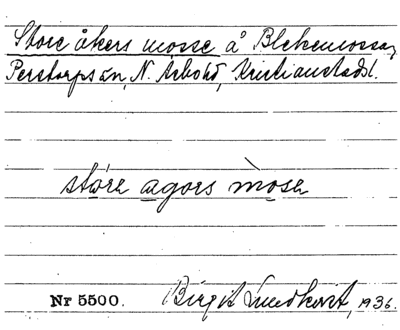 Store åkers mosse å Blekemossa,
Perstorps sn, N. Åsbo hd, Kristianstads l.
störe agors mosen
Nr 5500. Birgit Lundkvist, 1936.